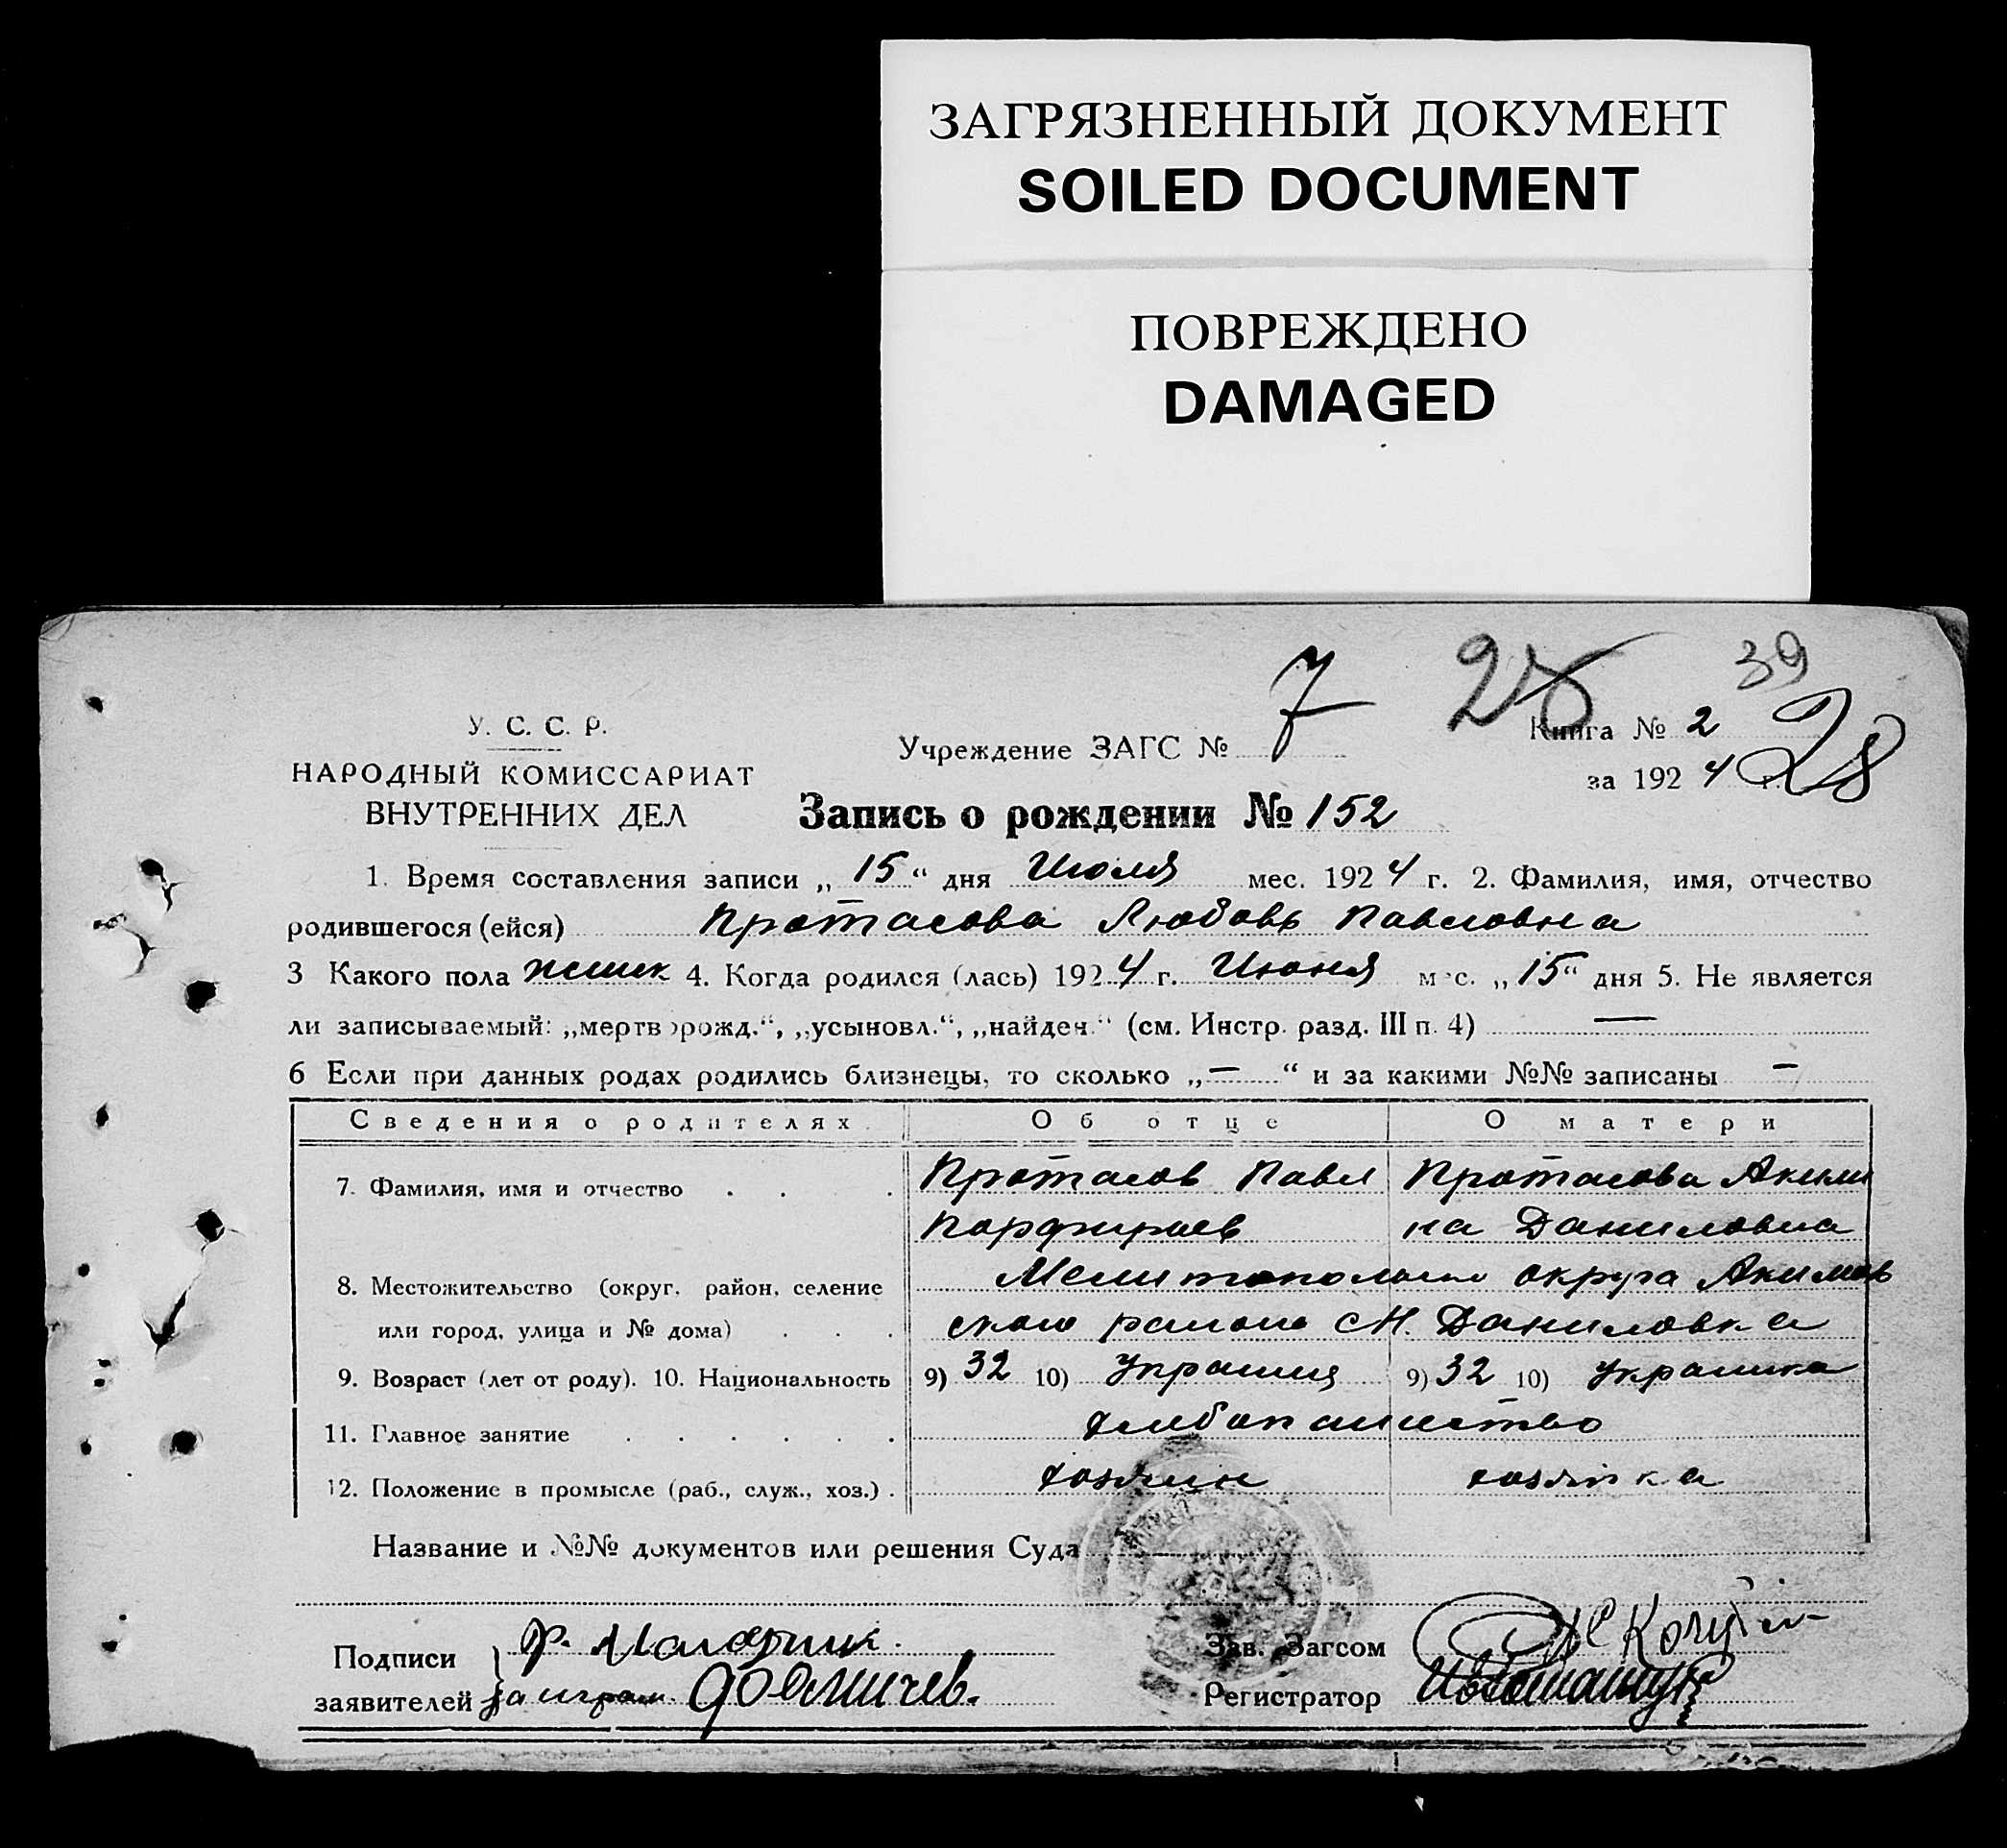 ЗАГРЯЗНЕННЫЙ ДОКУМЕНТ
SOILED DOCUMENT
ПОВРЕЖДЕНО
DAMAGED
39
У. С. С. Р.
НАРОДНЫЙ КОМИССАРИАТ
ВНУТРЕННИХ ДЕЛ
Учреждение ЗАГС № 7
Книга № 2
28
за 1924 г.
Запись о рождении № 152
1. Время составления записи „15“ дня Июля мес. 1924 г. 2. Фамилия, имя, отчество
родившегося (ейся) Протасова Любовь Павловна
3 Какого пола женск 4. Когда родился (лась) 1924 г. Июня мес. „15“ дня 5. Не является
ли записываемый: „мертворожд.“, „усыновл.“, „найден.“ (см. Инстр. разд. III п. 4) —
6 Если при данных родах родились близнецы, то сколько „—“ и за какими №№ записаны —
Сведения о родителях. Об отце О матери
7. Фамилия, имя и отчество Протасов Павел Протасова Акили
Порфирьев на Даниловна
8. Местожительство (округ, район, селение Мелитопольско округа Акимов
или город, улица и № дома) ского району с Н. Даниловка
9. Возраст (лет от роду). 10. Национальность 9) 32 10) Украинц 9) 32 10) Украинка
11. Главное занятие хлебопашество
12. Положение в промысле (раб., служ., хоз.) хозяин хозяйка
Название и №№ документов или решения Суда
Подписи
заявителей
Зав. Загсом
Регистратор